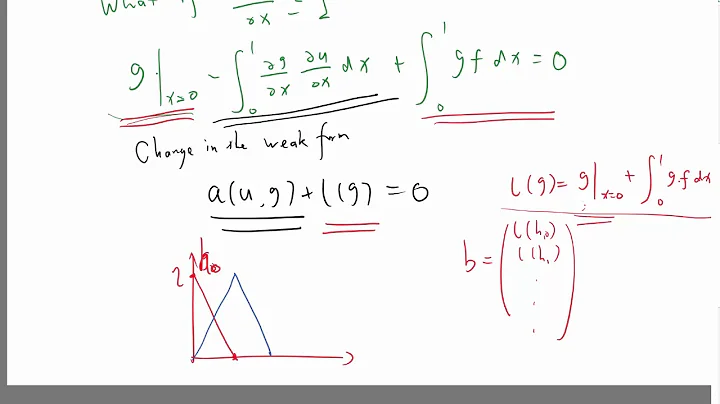 What if ∂/∂x = 1
g|x=0 - ∫₀¹ ∂g/∂x ∂u/∂x dx + ∫₀¹ g f dx = 0
Change in the weak form
a(u,g) + l(g) = 0
l(g) = g|x=0 + ∫₀¹ g.f dx
b = ( l(h₀)
l(h₁)
.
.
. )
1
h₀